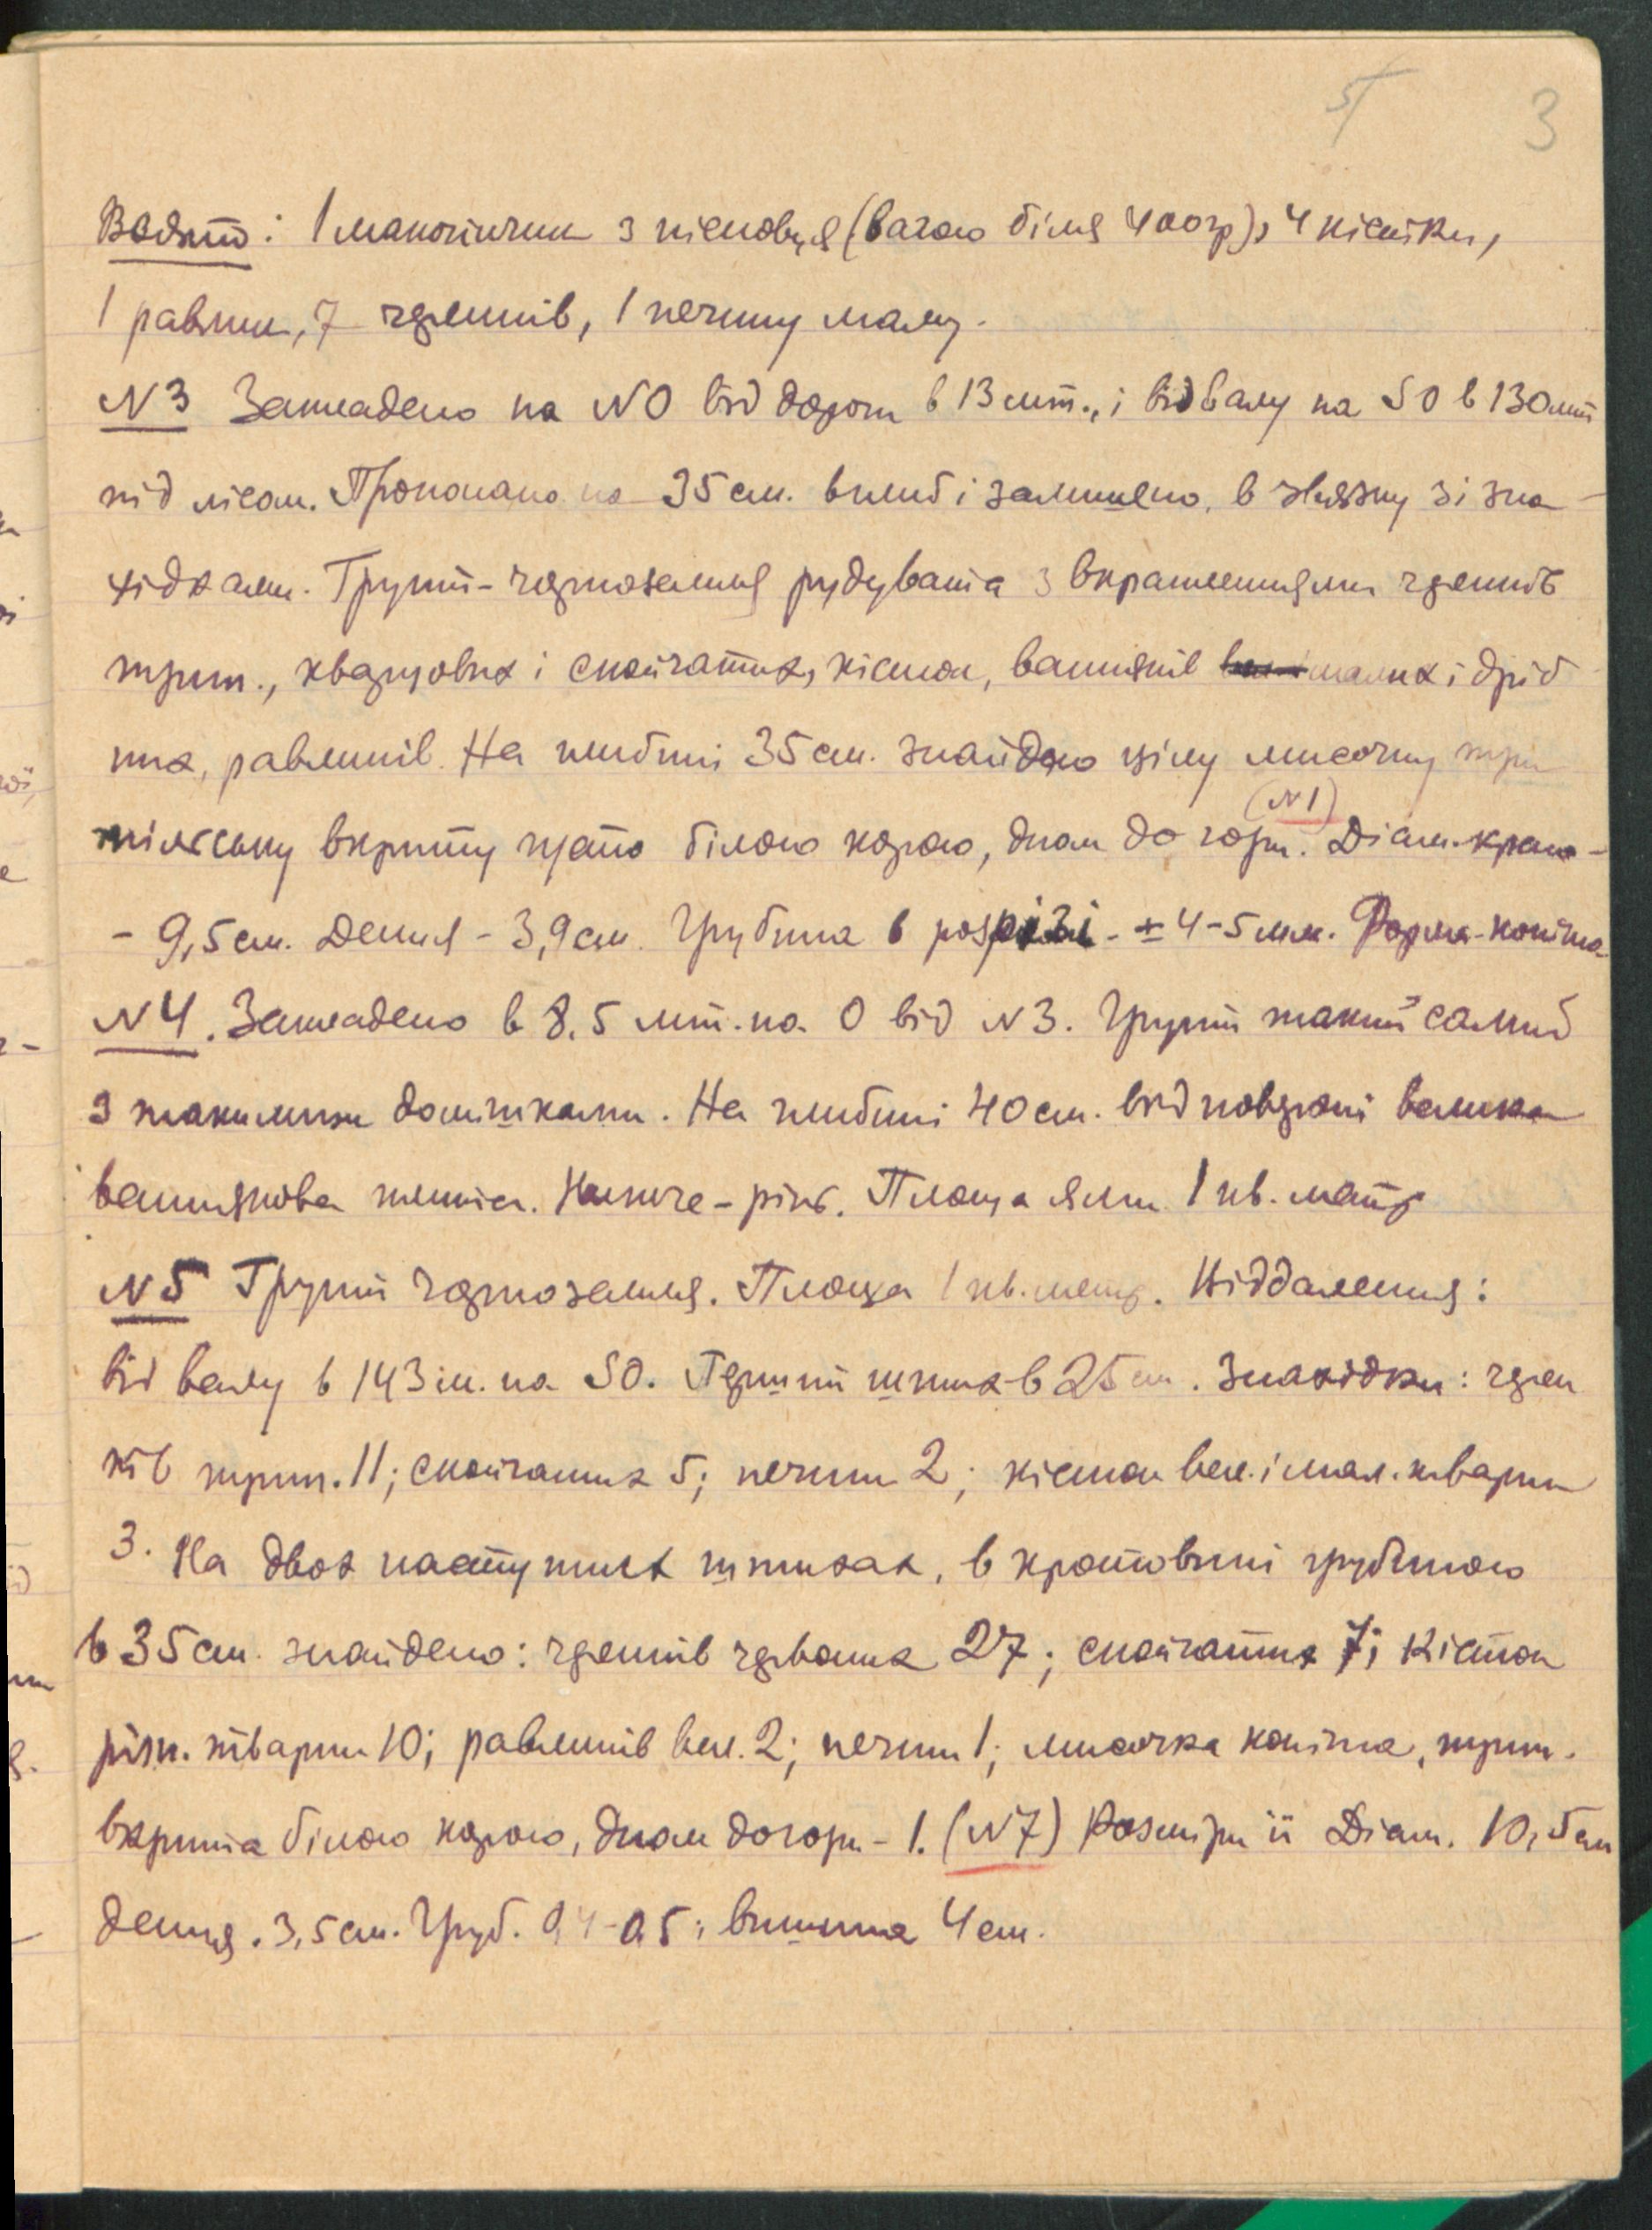 5
3
Взято: 1 макогончик з пісковця (вагою біля 400гр), 4 кістки,
1 равлик, 7 черепків, 1 печину малу.
N3 Закладено на NO від дороги в 13 мт., і від валу на SO в 130 мт
під лісом. Прокопано на 35 см. вглиб і залишено, в звязку зі зна-
хідками. Грунт - чорноземля рудувата з вкрапленнями черепків
трип., кварцових і скойчатих, кісток, вапняків малих і дріб
них, равликів. На глибині 35 см. знайдено цілу мисочку три
пільську вкриту густо білою корою, дном до гори. (N1) Діам. краю -
- 9,5 см. Денця - 3,9 см. Грубина в розрізі - ± 4-5 мм. Форма - конічна.
N4. Закладено в 8.5 мт. на O від N3. Грунт такий самий
з такимиж домішками. На глибині 40 см. від поверхні велика
вапнякова плита. Нижче - рінь. Площа ями 1 кв. метр
N5 Грунт чорноземля. Площа 1 кв. метр. Віддалення:
від валу в 143 м. на SO. Перший штих в 25 см. Знахідки: череп
ків трип. 11; скойчатих 5; печини 2; кісток вел. і мал. тварин
3. На двох наступних штихах, в кротовині грубиною
в 35 см. знайдено: черепків червоних 27; скойчатих 7; кісток
різн. тварин 10; равликів вел. 2; печини 1; мисочка конічна, трип.
вкрита білою корою, дном догори - 1. (N7) Розміри її Діам. 10,5 см
денця. 3,5 см. Груб. 0,4-0,5; вишина 4 см.